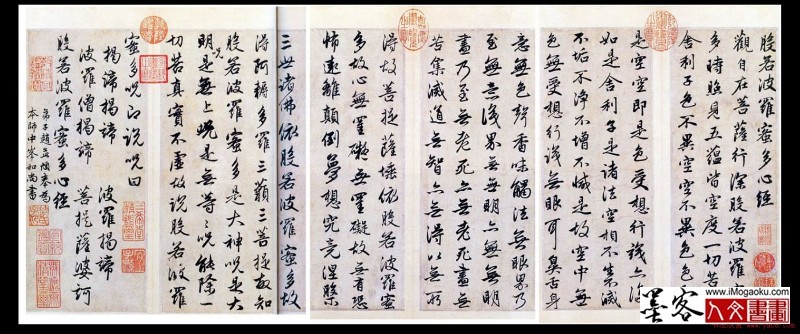 般若波羅蜜多心經
觀自在菩薩行深般若波羅
多時照見五蘊皆空度一切苦
舍利子色不異空空不異色色
是空空即是色受想行識亦復
如是舍利子是諸法空相不生不滅
不垢不淨不增不減是故空中無
色無受想行識無眼耳鼻舌身
意無色聲香味觸法無眼界乃
至無意識界無無明亦無無明
盡乃至無老死亦無老死盡無
苦集滅道無智亦無得以無所
得故菩提薩埵依般若波羅蜜
多故心無罣礙無罣礙故無有恐
怖遠離顛倒夢想究竟涅槃
三世諸佛依般若波羅蜜多故
得阿耨多羅三藐三菩提故知
般若波羅蜜多是大神咒是大
明咒是無上咒是無等等咒能除一
切苦真實不虛故說般若波羅
蜜多咒即說咒曰
揭諦揭諦 波羅揭諦
波羅僧揭諦 菩提薩婆訶
般若波羅蜜多心經
弟子趙孟頫奉為
本師中峯和尚書
墨客
www.iMogaoku.com
人文書畫